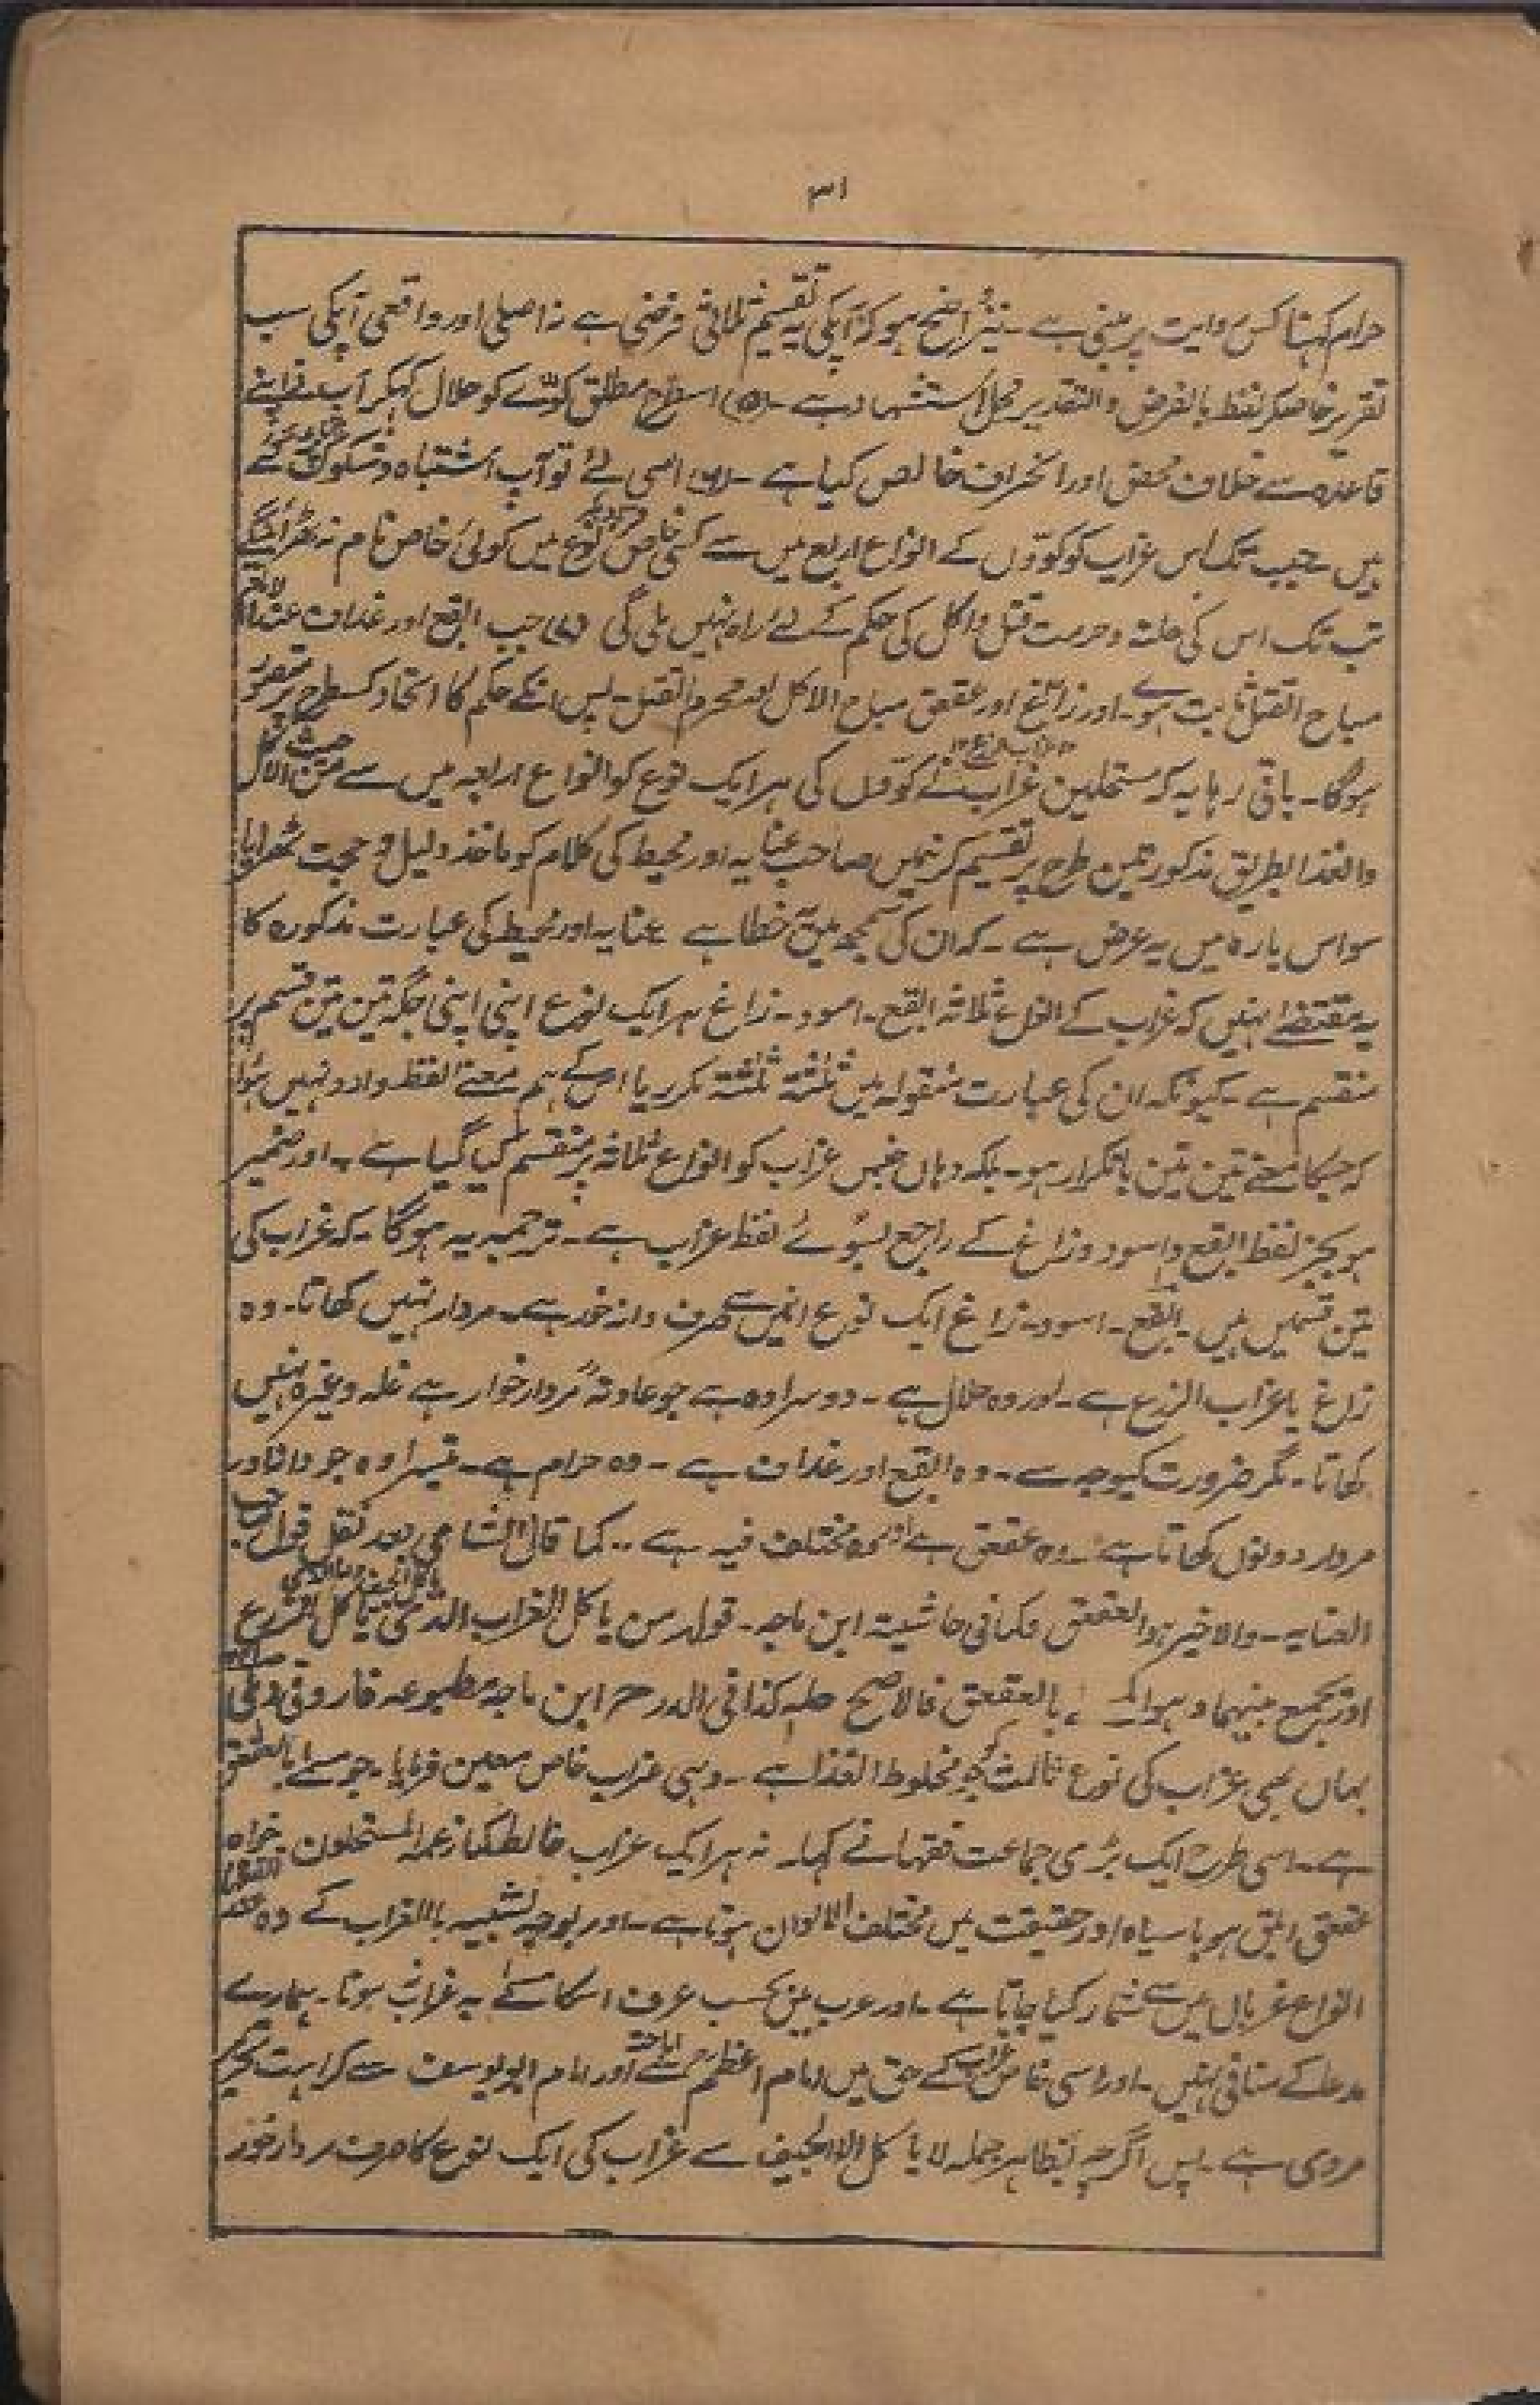 ۳۱
حرام کہنا کس روایت پر مبنی ہے۔ نیز واضح ہو کہ آپکی یہ تقسیم ثلاثی فرضی ہے نہ اصلی اور واقعی آپکی سب
تقریر خاصکر لفظ بالفرض والتقدیر محل استشہاد ہے۔ (۵) اسطرح مطلق کوّے کو حلال کہکر آپ نے اپنے
قاعدہ سے خلاف محقق اور انحراف خالص کیا ہے۔ (۶) اسی لئے تو آپ اشتباہ و شکوک کے
ہیں۔ جب تک اس غراب کو کووں کے انواع اربع میں سے کسی خاص نوع میں کوئی خاص نام نہ ٹھرائینگے
تب تک اس کی حلت و حرمت قتل و اکل کی حکم کے لئے راہ نہیں ملی گی (۷) جب ابقع اور غداف عند
مباح القتل ثابت ہوے۔ اور زاغ اور عقعق مباح الاکل اور محرم القتل۔ پس انکے حکم کا اتحاد کسطرح متصور
ہوگا۔ باقی رہا یہ کہ مستحلین غراب نے کووں کی ہر ایک نوع کو انواع اربعہ میں سے من حیث الاکل
والغذا بطریق مذکور تین طرح پر تقسیم کرنمیں صاحب عنایہ اور محیط کی کلام کو ماخذ دلیل و حجت ٹھرایا
سو اس بارہ میں یہ عرض ہے۔ کہ ان کی سمجھ میں خطا ہے عنایہ اور محیط کی عبارت مذکورہ کا
یہ مقتضے نہیں کہ غراب کے انواع ثلاثہ ابقع۔ اسود۔ زاغ ہر ایک نوع اپنی اپنی جگہ تین تین قسم پر
منقسم ہے۔ کیونکہ ان کی عبارت منقولہ میں ثلثۃ ثلثۃ مکرر یا اسکے ہم معنے لفظ وارد نہیں ہوا
کہ جسکا معنے تین تین باتکرار ہو۔ بلکہ وہاں جنس غراب کو انواع ثلاثہ پر منقسم کیا گیا ہے۔ اور ضمیر
ہو بجز لفظ ابقع و اسود و زاغ کے راجع بسوئے لفظ غراب ہے۔ ترجمہ یہ ہوگا۔ کہ غراب کی
تین قسمیں ہیں۔ ابقع۔ اسود۔ زاغ ایک نوع انمیں سے صرف دانہ خور ہے۔ مردار نہیں کھاتا۔ وہ
زاغ یا غراب الزرع ہے۔ اور وہ حلال ہے۔ دوسرا وہ ہے جو عادتہً مردار خوار ہے غلہ وغیرہ نہیں
کھاتا۔ مگر ضرورت کیوجہ سے۔ وہ ابقع اور غداف ہے۔ وہ حرام ہے۔ تیسرا وہ جو دانا اور
مردار دونوں کھاتا ہے۔ وہ عقعق ہے اور وہ مختلف فیہ ہے۔۔ کما قال الشامی بعد نقل قول صاحب
العنایہ۔ والاخیر ہوالعقعق وکمافی حاشیۃ ابن ماجہ۔ قولہ من یاکل الغراب الذی یاکل الزرع
او یجمع بینہما وہو بالعقعق فالاصح حلہ کذا فی الدر ابن ماجہ مطبوعہ فاروقی دہلی
یہاں بھی غراب کی نوع ثالث کو جو مخلوط الغذا ہے۔ وہی غراب خاص معین فرمایا۔ جو مسمے بالعقعق
ہے۔ اسی طرح ایک بڑی جماعت فقہا نے کہا۔ نہ ہر ایک غراب خالط کما زعمہ المستحلون خواہ
عقعق ابلق ہو یا سیاہ اور حقیقت میں مختلف الالوان ہوتا ہے۔ اور بوجہ تشبیہ بالغراب کے وہ عند الفقہا
انواع غربال میں سے شمار کیا جاتا ہے۔ اور عرب میں بحسب عرف اسکا مسمے بہ غراب ہونا۔ ہمارے
مدعا کے منافی نہیں۔ اور اسی خاص غراب کے حق میں امام اعظم سے اباحۃ اور امام ابویوسف سے کراہت تحریم
مروی ہے۔ پس اگرچہ بظاہر جملہ لا یاکل الا الجیف سے غراب کی ایک نوع کا صرف مردار خور